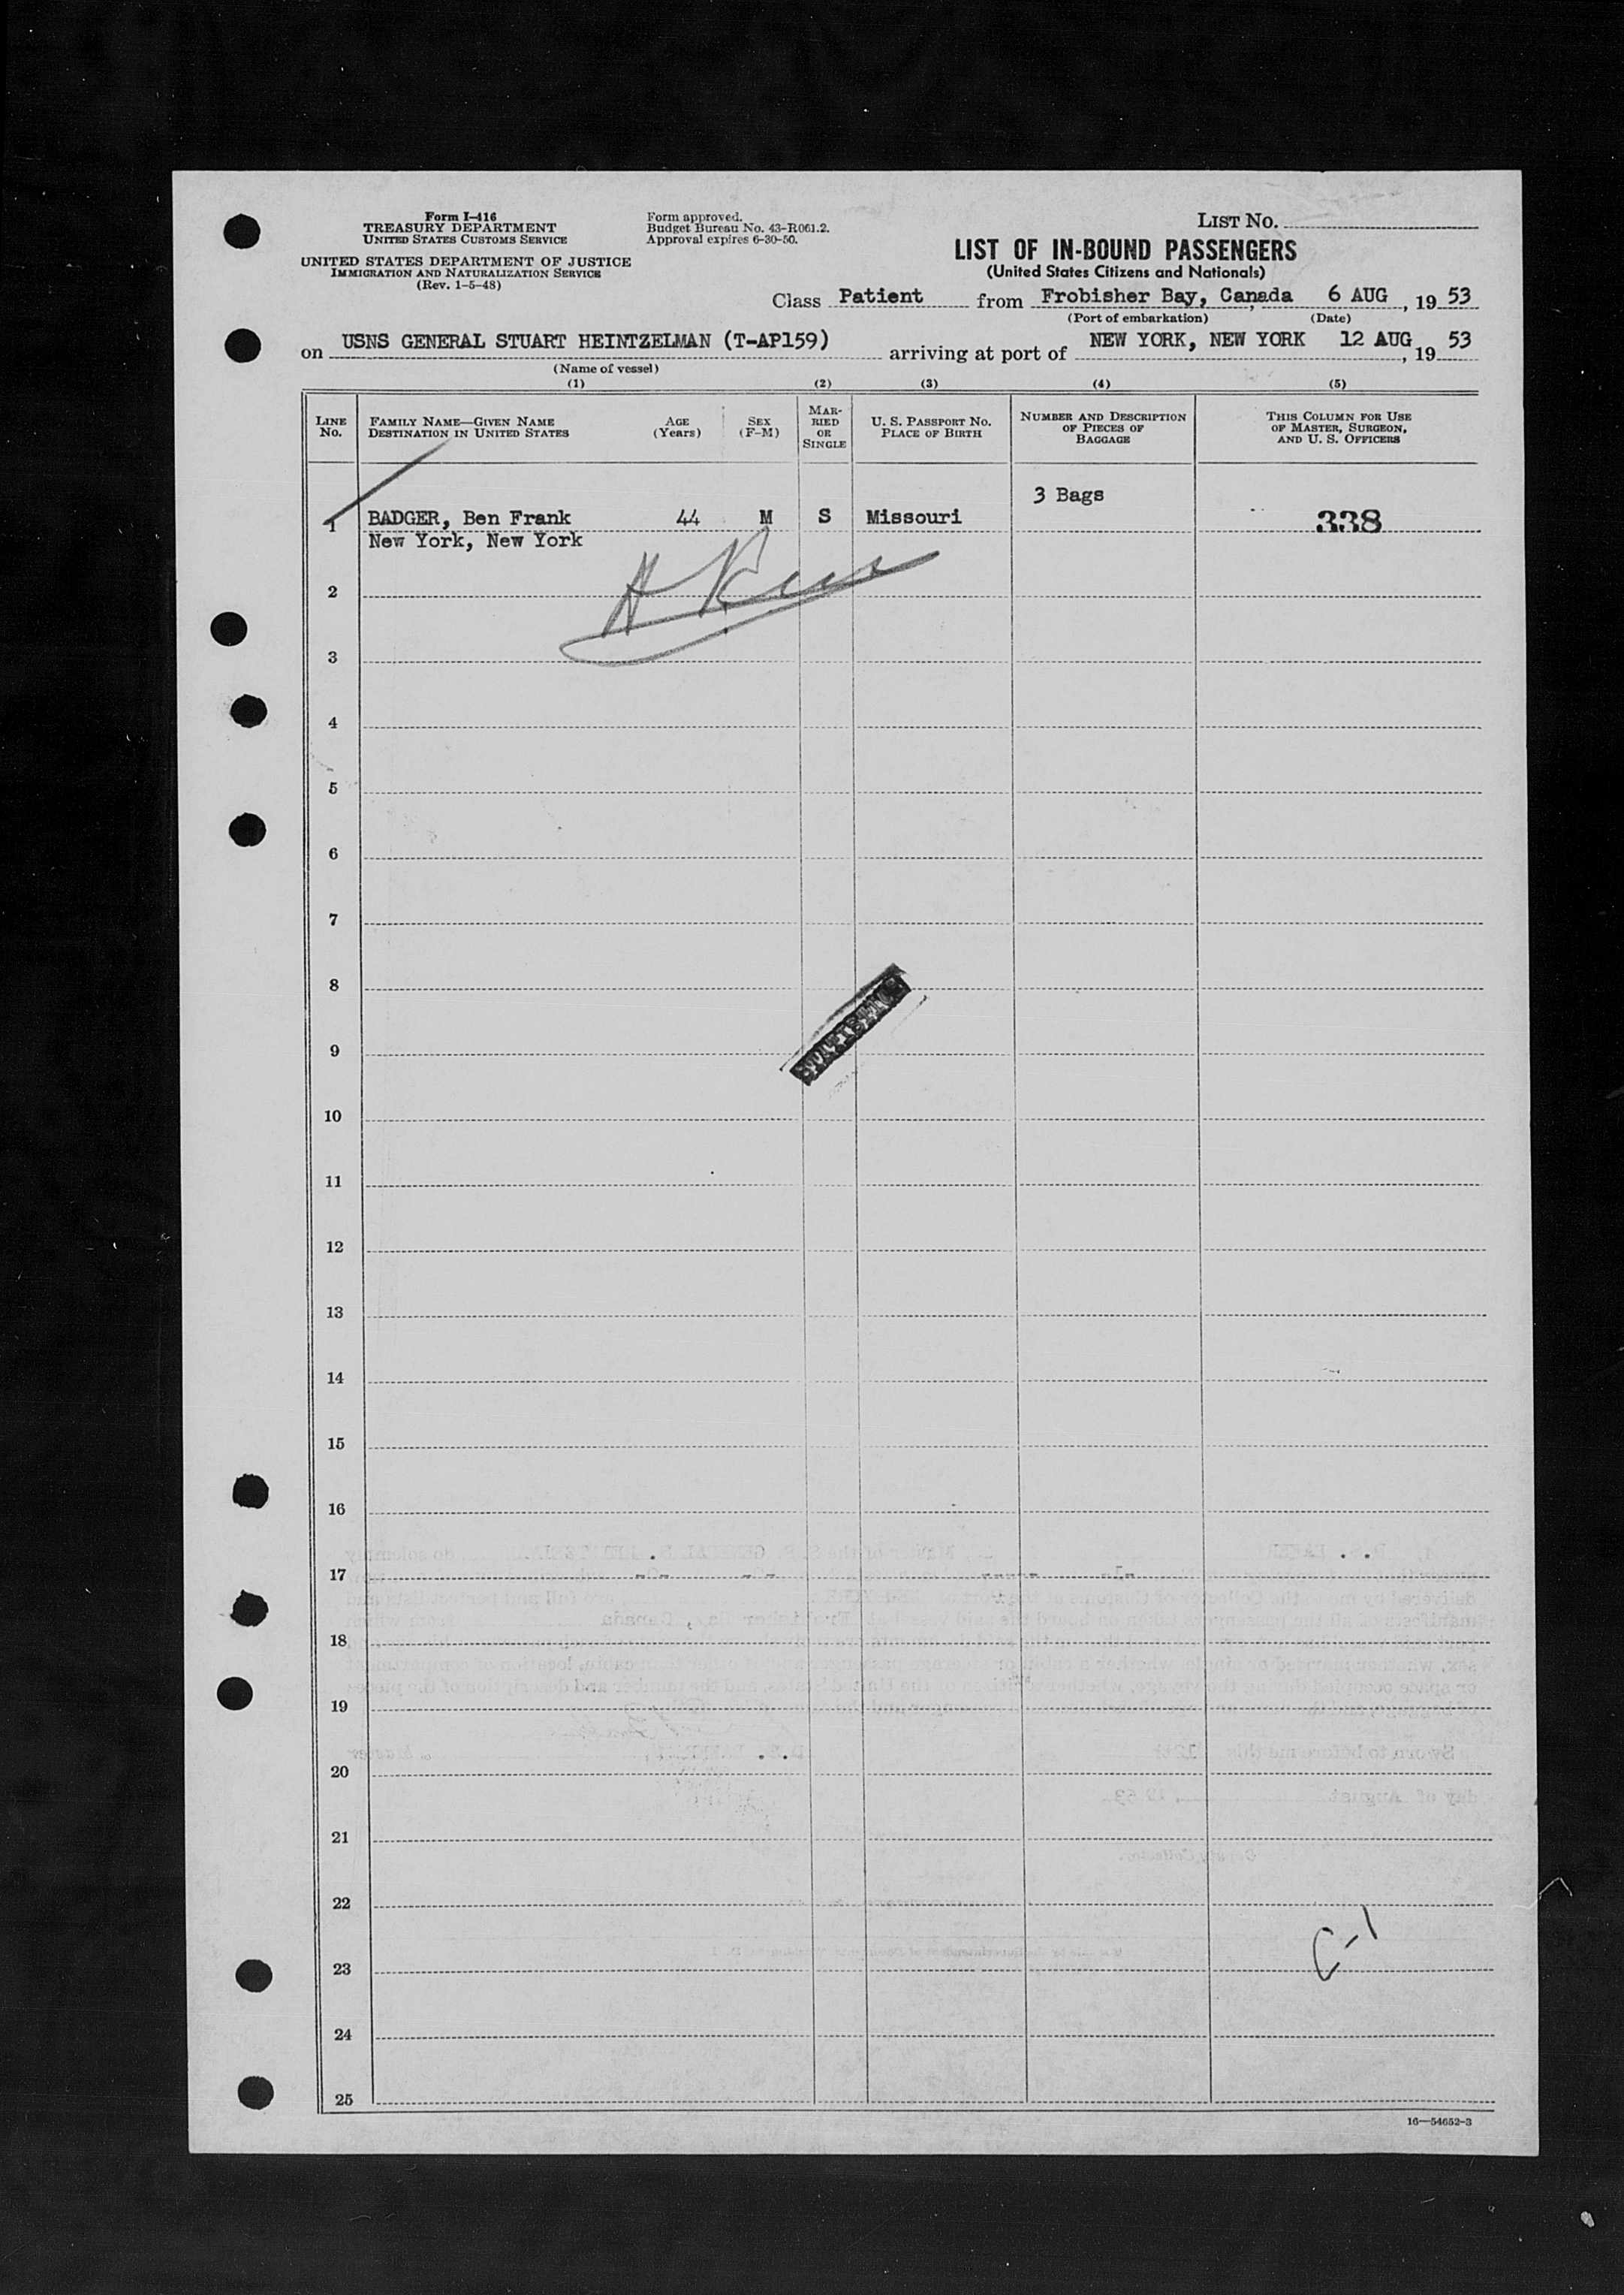 Form I-416
TREASURY DEPARTMENT
UNITED STATES CUSTOMS SERVICE
UNITED STATES DEPARTMENT OF JUSTICE
IMMIGRATION AND NATURALIZATION SERVICE
(Rev. 1-5-48)
Form approved.
Budget Bureau No. 43-R061.2.
Approval expires 6-30-50.
LIST NO.
LIST OF IN-BOUND PASSENGERS
(United States Citizens and Nationals)
Class Patient from Frobisher Bay, Canada 6 AUG, 19 53
(Port of embarkation) (Date)
on USNS GENERAL STUART HEINTZELMAN (T-AP159) arriving at port of NEW YORK, NEW YORK 12 AUG, 19 53
(Name of vessel)
(1) (2) (3) (4) (5)
LINE NO.
FAMILY NAME—GIVEN NAME
DESTINATION IN UNITED STATES
AGE
(Years)
SEX
(F-M)
MARRIED OR SINGLE
U. S. PASSPORT NO.
PLACE OF BIRTH
NUMBER AND DESCRIPTION
OF PIECES OF
BAGGAGE
THIS COLUMN FOR USE
OF MASTER, SURGEON,
AND U. S. OFFICERS
3 Bags
1 BADGER, Ben Frank 44 M S Missouri 338
New York, New York
2
3
4
5
6
7
8
9
10
11
12
13
14
15
16
17
18
19
20
21
22
C-1
23
24
25
16—54652-3